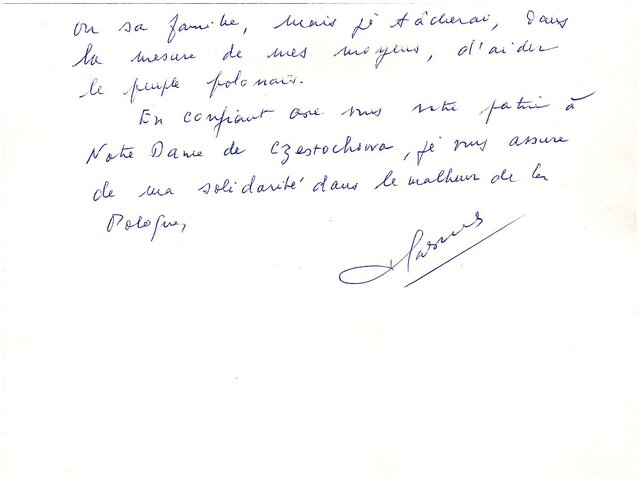 ou sa famille, mais je tâcherai, dans
la mesure de mes moyens, d'aider
le peuple polonais.
En confiant avec vous votre patrie à
Notre Dame de Czestochowa, je vous assure
de ma solidarité dans le malheur de la
Pologne,